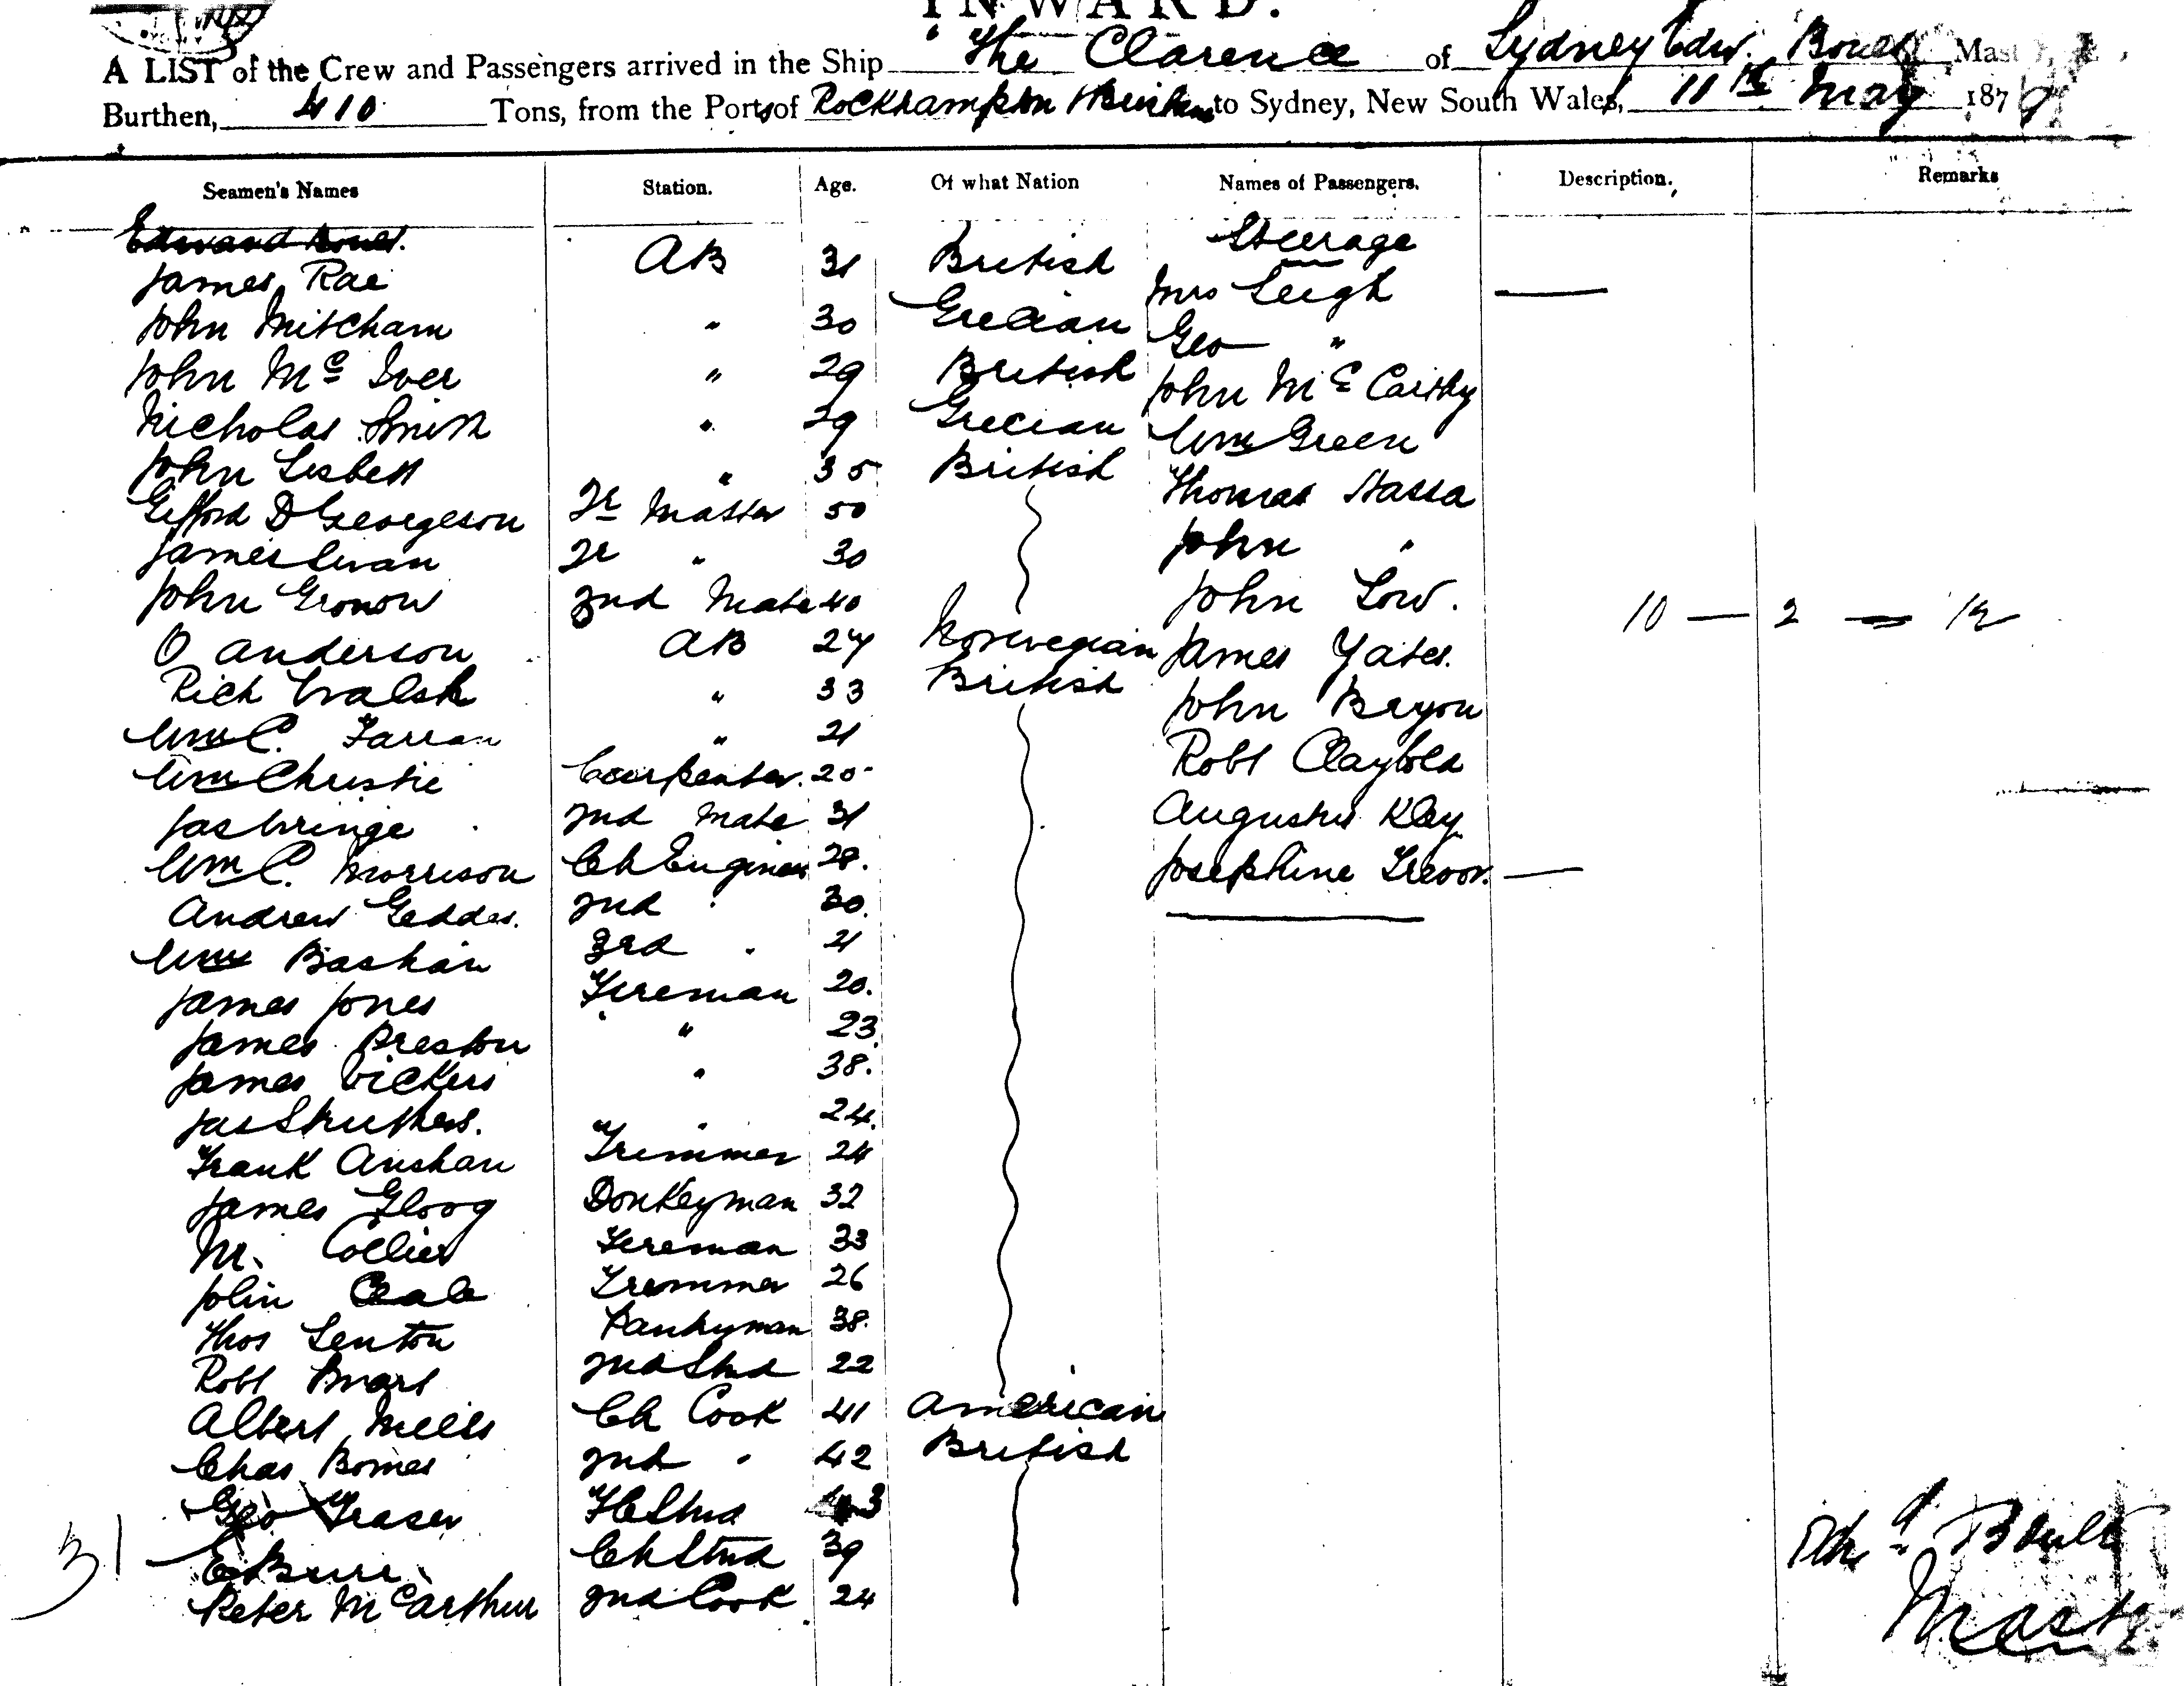 INWARD.
A LIST of the Crew and Passengers arrived in the Ship "The Clarence of Sydney Edw. Master,
Burthen, 410 Tons, from the Ports of Rockhampton & to Sydney, New South Wales, 11th May 187
Seamen's Names Station. Age. Of what Nation Names of Passengers. Description. Remarks
Edward Steerage
James Rae AB 31 British Mrs Leigh
John Mitcham " 30 Grecian Geo "
John McIver " 29 British John McCarthy
Nicholas Smith " 29 Grecian Wm Green
John Lisbett " 35 British Thomas Stassa
Gifford D Georgeson Master 50 John "
James Swan " 30 John Low.
John Gronow 2nd Mate 40 James Yates. 10 — 2 = 12
O Anderson AB 27 Norwegian John Bryon
Rich Walsh " 33 British Robt Claybold
Wm C. Farran " 21 Augustus Kley
Wm Christie Carpenter. 20 Josephine Trevor. —
Jas Wringe 2nd Mate 31
Wm C. Morrison Ch Engineer 28.
Andrew Geddes. 2nd " 30.
Wm Bashan 3rd " 21
James Jones Fireman 20.
James Preston " 23.
James Vickers " 38.
Jas Struthers. " 24.
Frank Anshan Trimmer 24
James Gloog Donkeyman 32
M. Collier Fireman 33
John Trimmer 26
Thos Lenton Pantryman 38.
Robt Smart 2nd Stwd 22
Albert Mills Ch Cook 41 American
Chas Bomes 2nd " 42 British
Geo Fraser Stwd 43
31 Ch Stwd 39
Peter McArthur 2nd Cook 24